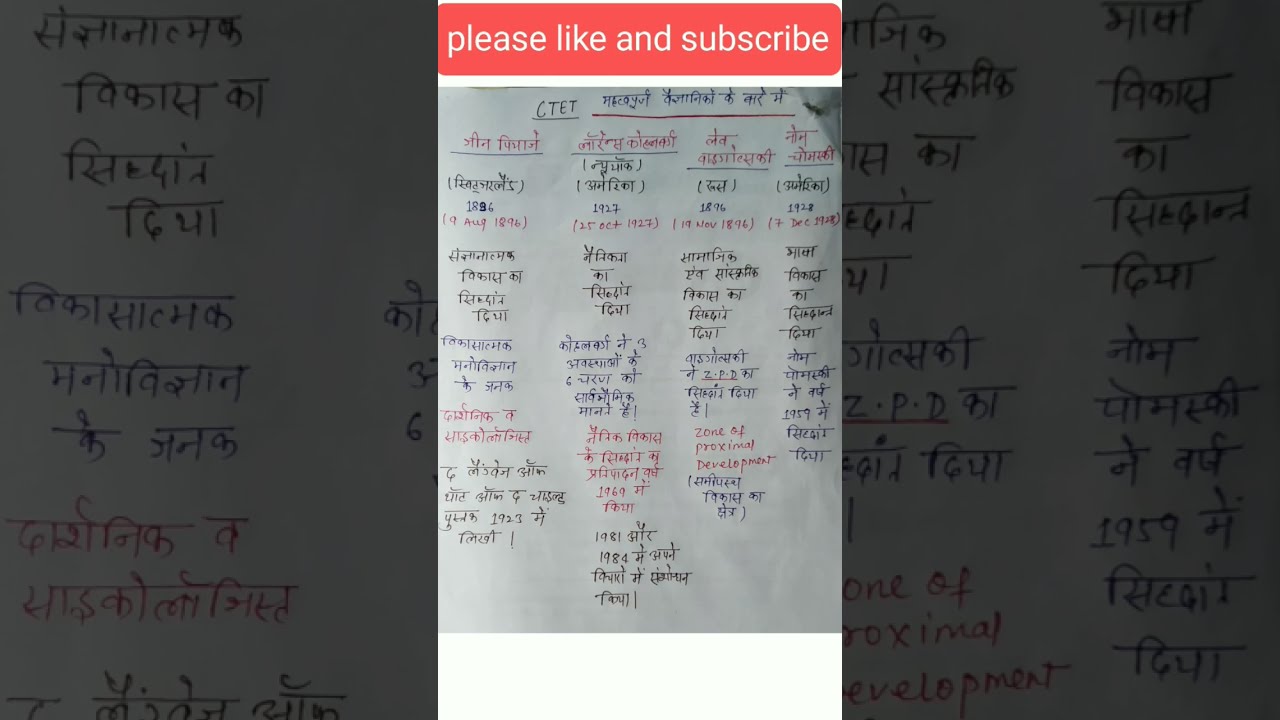 please like and subscribe
CTET महत्वपूर्ण वैज्ञानिकों के बारे में
जीन पियाजे
(स्विट्जरलैंड)
1896
(9 Aug 1896)
संज्ञानात्मक
विकास का
सिद्धांत
दिया
विकासात्मक
मनोविज्ञान
के जनक
दार्शनिक व
साइकोलॉजिस्ट
द लैंग्वेज ऑफ
थॉट ऑफ द चाइल्ड
पुस्तक 1923 में
लिखी |
लॉरेन्स कोहलबर्ग
(न्यूयॉक)
(अमेरिका)
1927
(25 Oct 1927)
नैतिकता
का
सिद्धांत
दिया
कोहलबर्ग ने 3
अवस्थाओं के
6 चरण को
सार्वभौमिक
मानते है।
नैतिक विकास
के सिद्धांत का
प्रतिपादन वर्ष
1969 में
किया
1981 और
1984 में अपने
विचारो में संशोधन
किया|
लेव
वाइगोत्सकी
(रूस)
1896
(19 Nov 1896)
सामाजिक
एंव सांस्कृतिक
विकास का
सिद्धांत
दिया
वाइगोत्सकी
ने Z.P.D का
सिद्धांत दिया
है|
Zone of
proximal
Development
(समीपस्थ
विकास का
क्षेत्र)
नोम
चोमस्की
(अमेरिका)
1928
(7 Dec 1928)
भाषा
विकास
का
सिद्धान्त
दिया
नोम
चोमस्की
ने वर्ष
1959 में
सिद्धांत
दिया
संज्ञानात्मक
विकास का
सिद्धांत
दिया
विकासात्मक
मनोविज्ञान
के जनक
दार्शनिक व
साइकोलॉजिस्ट
द लैंग्वेज ऑफ
सांस्कृतिक
का
Z.P.D का
दिया
भाषा
विकास
का
सिद्धान्त
दिया
नोम
चोमस्की
ने वर्ष
1959 में
सिद्धांत
दिया